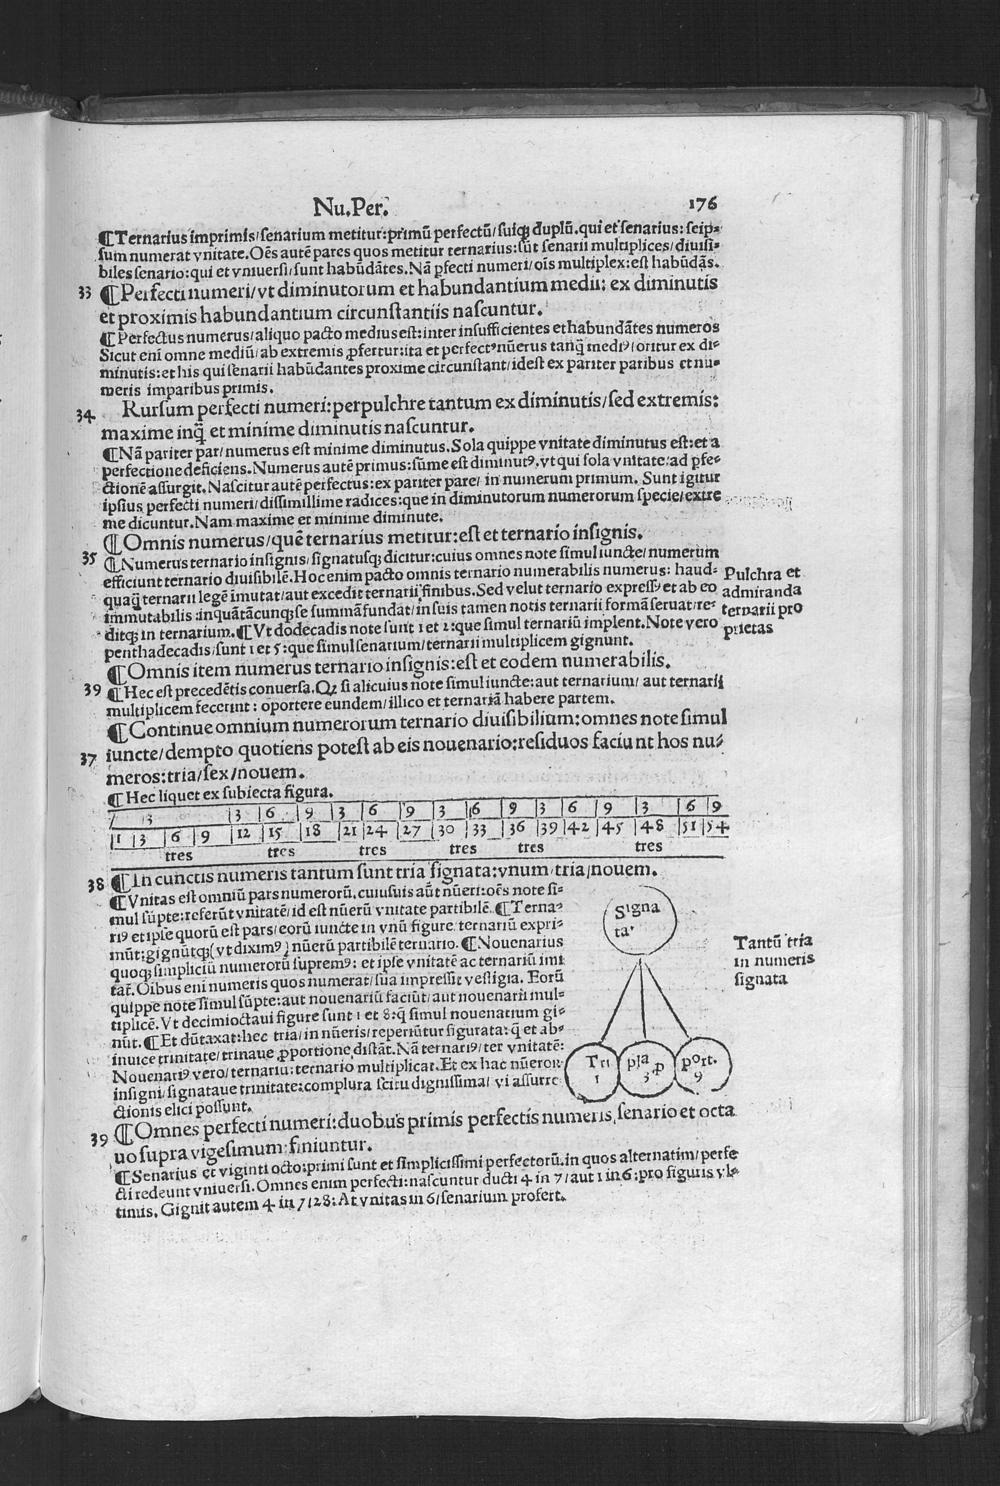 Nu.Per. 176
¶Ternarius imprimis/senarium metitur:primū perfectū/suiqꝫ duplū.qui et senarius:seip⸗
sum numerat vnitate.Oēs autē pares quos metitur ternarius:sūt senarii multiplices/diuisi⸗
biles senario:qui et vniuersi/sunt habūdātes.Nā ꝑfecti numeri/oīs multiplex:est habūdās.
33 ¶Perfecti numeri/vt diminutorum et habundantium medii: ex diminutis
et proximis habundantium circunstantiis nascuntur.
¶Perfectus numerus/aliquo pacto medius est:inter insufficientes et habundātes numeros
Sicut eni omne mediū/ab extremis ꝓfertur:ita et perfectꝰ nūerus tanq̄ mediꝰ/oritur ex di⸗
minutis:et his qui senarii habūdantes proxime circunstant/idest ex pariter paribus et nu⸗
meris imparibus primis.
34 Rursum perfecti numeri:perpulchre tantum ex diminutis/sed extremis:
maxime inq̄ et minime diminutis nascuntur.
¶Nā pariter par/numerus est minime diminutus.Sola quippe vnitate diminutus est:et a
perfectione deficiens.Numerus autē primus:sūme est diminutꝰ.vt qui sola vnitate:ad ꝑfe⸗
ctionē assurgit.Nascitur autē perfectus:ex pariter pare/in numerum primum. Sunt igitur
ipsius perfecti numeri/dissimillime radices:que in diminutorum numerorum specie/extre
me dicuntur.Nam maxime et minime diminute.
¶Omnis numerus/quē ternarius metitur:est et ternario insignis.
35 ¶Numerus ternario insignis/signatusqꝫ dicitur:cuius omnes note simul iuncte/numerum
efficiunt ternario diuisibilē.Hoc enim pacto omnis ternario numerabilis numerus: haud⸗
quaq̄ ternarii legē imutat/aut excedit ternarii finibus.Sed velut ternario expressꝰ et ab eo
immutabilis:inquātācunqꝫ se summā fundat/in suis tamen notis ternarii formā seruat/re⸗
ditqꝫ in ternarium.¶Vt dodecadis note sunt 1 et 2:que simul ternariū implent.Note vero
penthadecadis/sunt 1 et 5:que simul senarium/ternarii multiplicem gignunt.
Pulchra et
admiranda
ternarii pro
prietas
¶Omnis item numerus ternario insignis:est et eodem numerabilis.
39 ¶Hec est precedētis conuersa.Qꝫ si alicuius note simul iuncte:aut ternarium/aut ternarii
multiplicem fecerint: oportere eundem/illico et ternariā habere partem.
¶Continue omnium numerorum ternario diuisibilium:omnes note simul
37 iuncte/dempto quotiens potest ab eis nouenario:residuos faciunt hos nu⸗
meros:tria/sex/nouem.
¶Hec liquet ex subiecta figura.
3 3 6 9 3 6 9 3 6 9 3 6 9 3 6 9
1 3 6 9 12 15 18 21 24 27 30 33 36 39 42 45 48 51 54
tres tres tres tres tres tres
38 ¶In cunctis numeris tantum sunt tria signata:vnum/tria/nouem.
¶Vnitas est omniū pars numerorū.cuiusuis aūt nūeri:oēs note si⸗
mul sūpte:referūt vnitatē/id est nūerū vnitate partibilē.¶Terna⸗
riꝰ et ipse quorū est pars/eorū iuncte in vnū figure/ternariū expri⸗
mūt:gignūtqꝫ(vt diximꝰ) nūerū partibilē ternario.¶Nouenarius
quoqꝫ simpliciū numerorū supremꝰ: et ipse vnitatē ac ternariū imi
tat̄.Oibus eni numeris quos numerat/sua impressit vestigia. Eorū
quippe note simul sūpte:aut nouenariū faciūt/aut nouenarii mul⸗
tiplicē.Vt decimioctaui figure sunt 1 et 8:q̄ simul nouenarium gi⸗
nūt.¶Et dūtaxat:hec tria/in nūeris/reperiūtur sigurata:q̄ et ab⸗
inuice trinitate/trinaue ꝓportione distāt.Nā ternariꝰ/ter vnitatē:
Nouenariꝰ vero/ternariū:ternario multiplicat.Et ex hac nūeron
insigni/signataue trinitate:complura scitu dignissima/ vi assurre
ctionis elici possunt.
Signa
ta.
Tri pꝛia ꝓ port.
1 3 9
Tantū tria
in numeris
signata
39 ¶Omnes perfecti numeri:duobus primis perfectis numeris/senario et octa
uo supra vigesimum:finiuntur.
¶Senarius et viginti octo:primi sunt et simplicissimi perfectorū.in quos alternatim/perfe
cti redeunt vniuersi.Omnes enim perfecti:nascuntur ductu 4 in 7/aut 1 in 6:pro figuris vl⸗
timis.Gignit autem 4 in 7/28:At vnitas in 6/senarium profert.